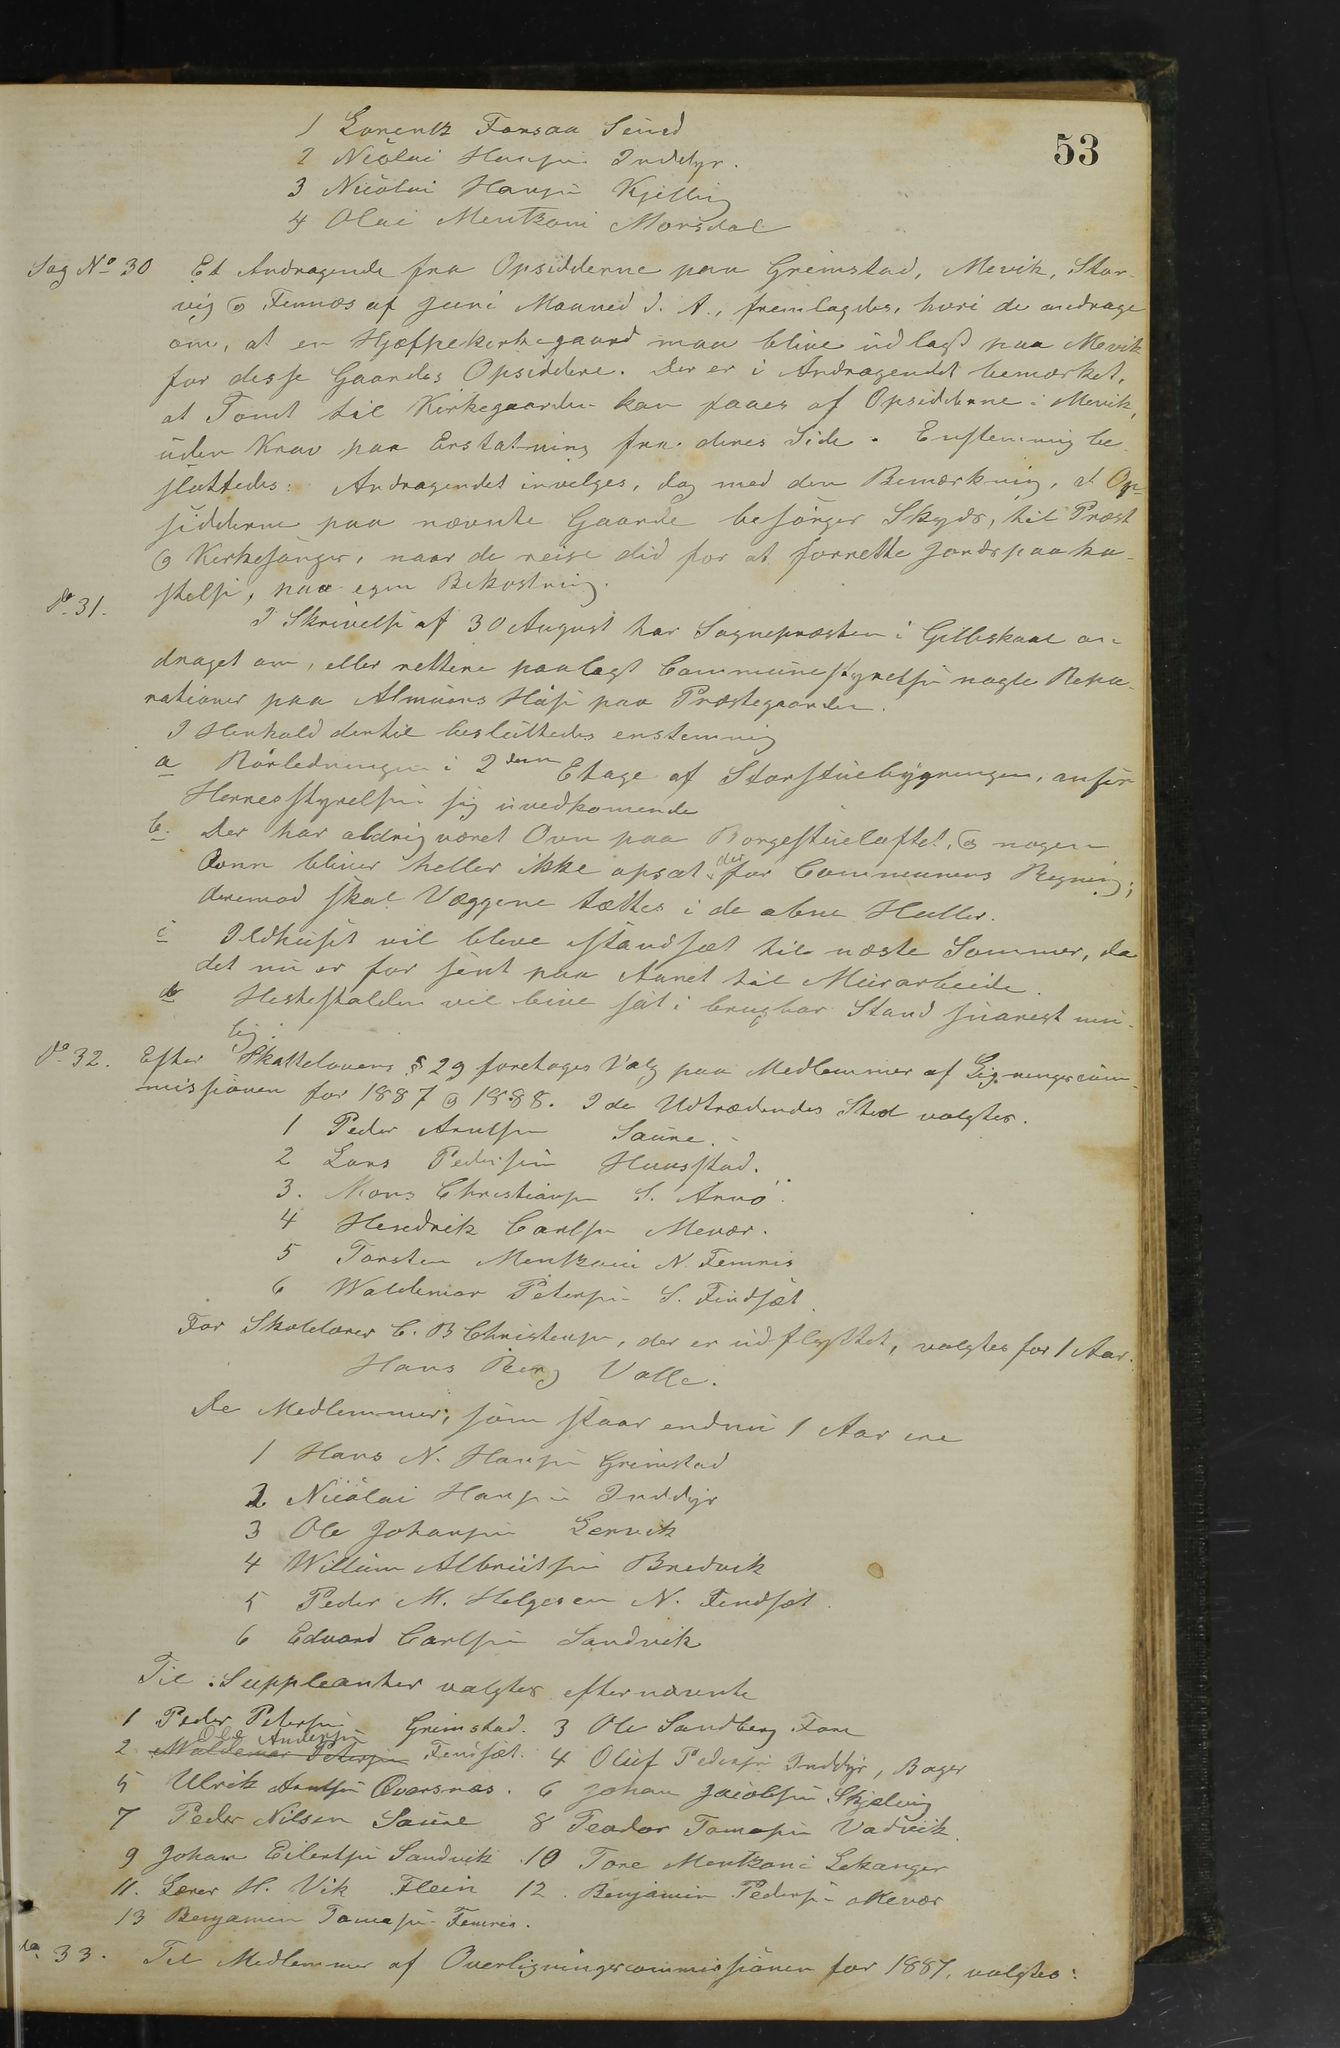 53
1 Lorentz Forsaa Sund
2 Nicolai Hansen Inddyr.
3 Nicolai Hansen Kjelling
4 Olai Mentzoni Morsdal
Sag No 30 Et Andragende fra Opsidderne paa Grimstad, Mevik, Stor-
vig og Fennes af Juni Maaned d. A., fremlagdes, hvori de andrage
om, at en Hjælpekirkegaard maa blive udlagt paa Mevik
for disse Gaardes Opsiddere. Der er i Andragendet bemærket,
at Tomt til Kirkegaarden kan faaes af Opsidderne i Mevik,
uden Krav paa Erstatning fra deres Side. Enstemmig be-
sluttedes: Andragendet invilges, dog med den Bemærkning, at Op-
sidderne paa nævnte Gaarde besørger Skyds, til Præst
og Kirkesanger, naar de reise did for at forrette Jordspaaka-
stelse, paa egen Bekostning.
do 31.
I Skrivelse af 30 August har Sognepræsten i Gilleskaal an-
draget om, eller rettere paalagt Communestyrelsen nogle Repa-
rationer paa Almuens Huse paa Præstegaarden.
I Henhold dertil besluttedes enstemmig
a Rørledningen i 2den Etage af Storstuebygningen, anser
Herresstyrelsen sig uvedkomende
b. Der har aldrig været Ovn paa Borgestueloftet, og nogen
Ovnn bliver heller ikke opsat der for Communens Regning;
deremod skal Væggene tættes i de abne Huller.
c Ildhuset vil bleve istandsæt til næste Sommer, da
det nu er for sent paa Aaret til Murarbeide.
d Hestestalden vil blive sat i brugbar Stand snarest mu-
lig.
do 32. Efter Skattelovens § 29 foretages Valg paa Medlemmer af Ligningscom-
missionen for 1887 og 1888. I de Udtrædendes Sted valgtes.
1 Peder Arntsen Saure.
2 Lars Pedersen Hunstad.
3. Mons Christiansen S. Arnø.
4 Hendrik Carlsen Mevær.
5 Torsten Mentzoni N. Femris
6 Waldemar Petersen S. Findset.
For Skolelærer C. B Christensen, der er udflyttet, valgtes for 1 Aar.
Hans Berg Valle.
De Medlemmer, som staar endnu 1 Aar ere
1 Hans N. Hansen Grimstad
2 Nicolai Hansen Inddyr
3 Ole Johansen Lervik
4 Willum Albrigtsen Bredvik
5 Peder M. Helgesen N. Findset.
6 Edvard Carlsen Sandvik
Til Suppleanter valgtes efternævnte
1 Peder Petersen Grimstad. 3 Ole Sandberg Fore
Ole Andersen
2 Waldemar Petersen Finset. 4 Oluf Pedersen Inddyr, Bager
5 Ulrik Arntsen Oversnæs. 6 Johan Jacobsen Skjelvig
7 Peder Nilsen Saure 8 Teodor Tomasen Vadvik.
9 Johan Eilertsen Sandvik 10 Tore Mentzoni Lekanger
11. Lærer H. Vik Flein 12. Benjamin Pedersen Mevær
13 Benjamin Tomasen Femris.
do 33. Til Medlemmer af Overligningscommissionen for 1887, valgtes: